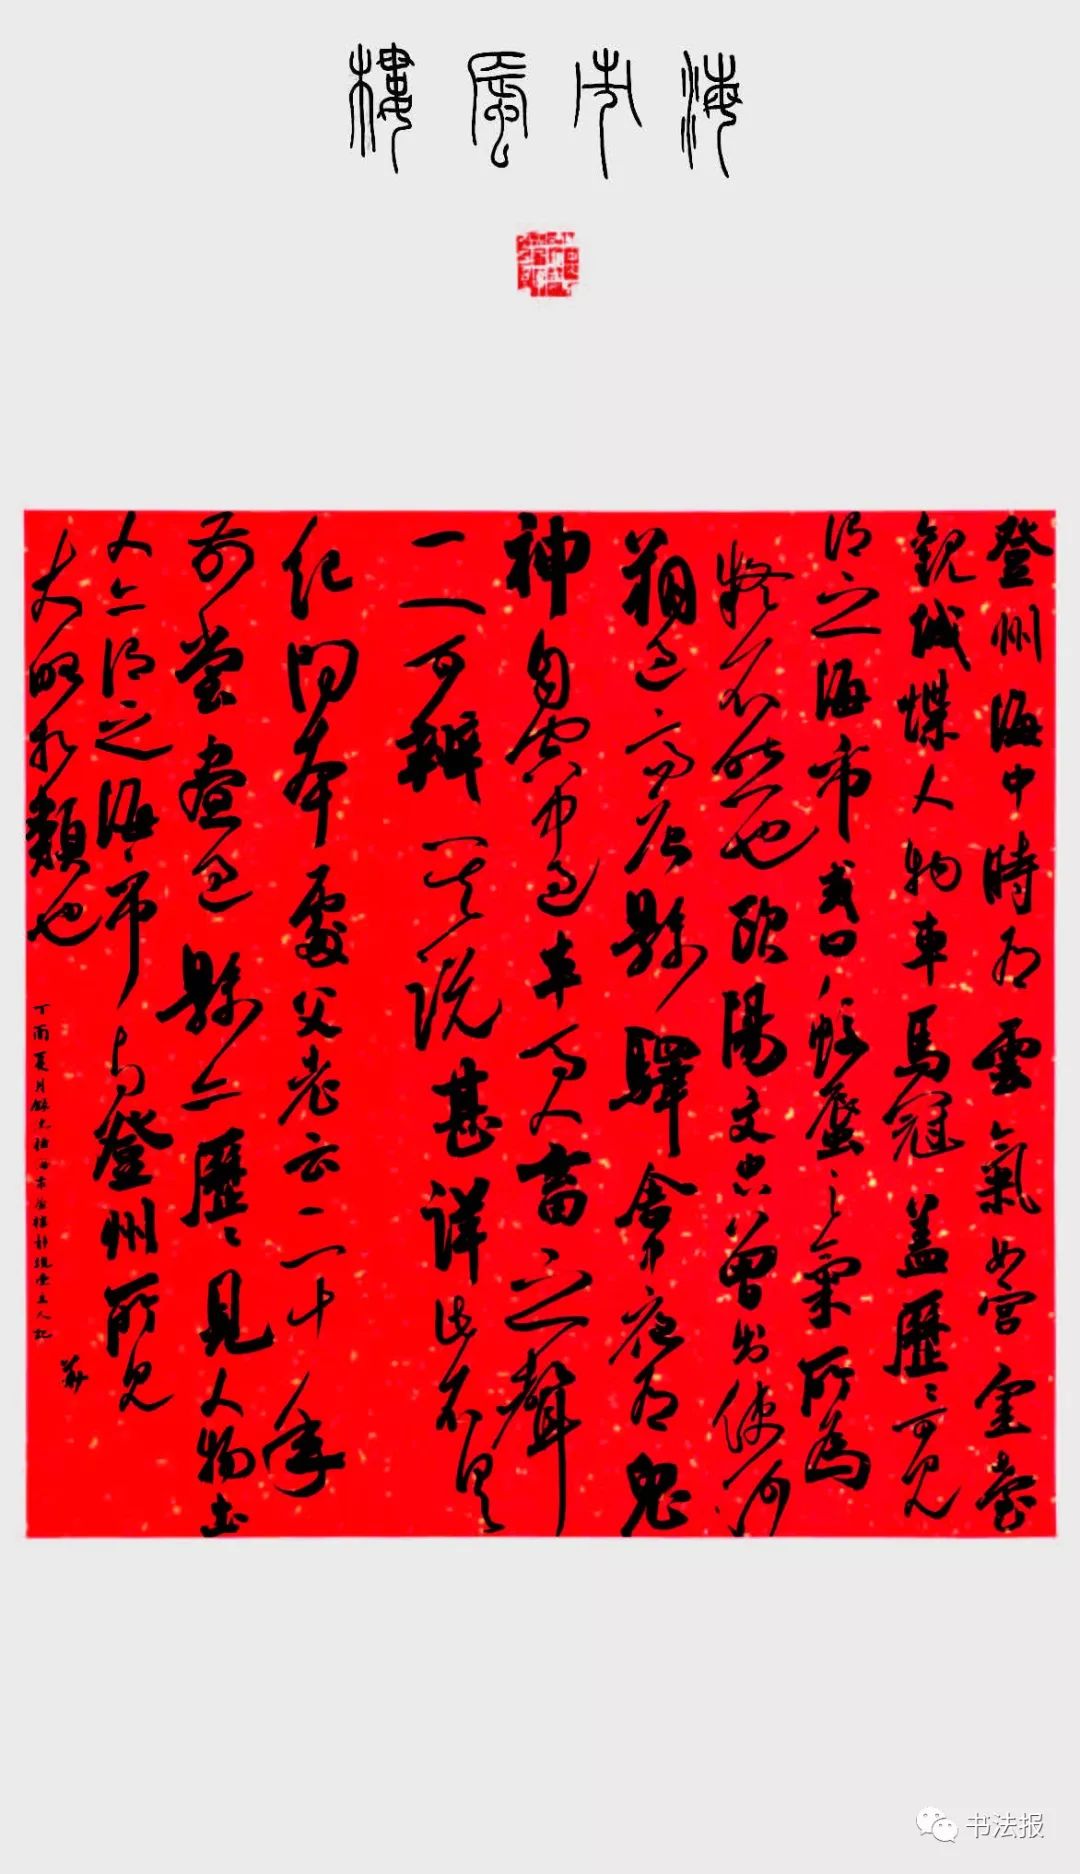 海市蜃樓
登州海中時有雲氣如宮室臺
觀城堞人物車馬冠蓋歷歷可見
謂之海市或曰蛟蜃之氣所為
疑不然也歐陽文忠曾出使河
朔過高唐縣驛舍夜有鬼
神自空中過車馬人畜之聲
一一可辨其說甚詳此不具
紀問本處父老云二十年
前嘗晝過縣亦歷歷見人物土
人亦謂之海市與登州所見
大略相類也
丁酉夏月錄沈括海市蜃樓 主人記
书法报